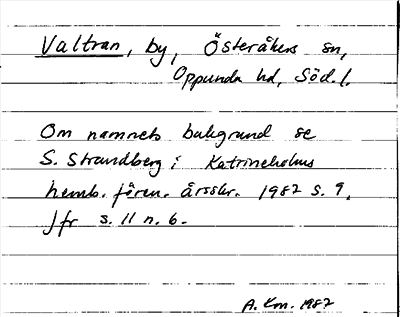 Valtran, by, Österåkers sn,
Oppunda hd, Söd.l.
Om namnets bakgrund se
S. Strandberg i Katrineholms
hemb. fören. årsskr. 1982 s. 9.
Jfr s. 11 n. 6.
A. 1987